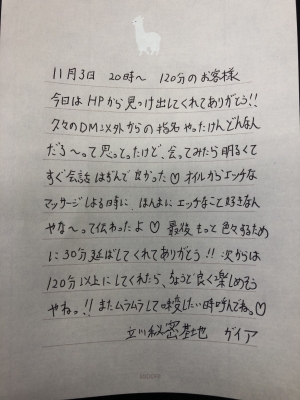 11月3日 20時〜 120分のお客様
今日はHPから見つけ出してくれてありがとう!!
久々のDM以外からの指名やったけんどんな人
だろ〜って思ってたけど、会ってみたら明るくて
すぐ会話はずんで良かった♡ オイルからエッチな
マッサージしよる時に、ほんまにエッチなこと好きな人
やな〜って伝わったよ♡ 最後もっと色々するため
に30分延ばしてくれてありがとう!! 次からは
120分以上にしてくれたら、ちょうど良く楽しめそう
やねっ!! またムラムラして 挿したい時呼んでね。♡
立川秘密基地 ゲイア